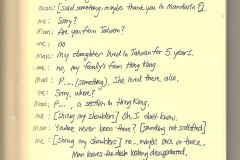 Man: [said something, maybe thank you in Mandarin?].
me: Sorry?
Man: Are you from Taiwan?
me: no
Man: My daughter lived in Taiwan for 5 years.
me: no, my family's from Hong Kong.
Man: P... (something), She lived there, also.
me: Sorry, where?
Man: P..., a section in Hong Kong.
me: [shrug my shoulders] Oh, I don't know.
Man: You've never been there? [sounding not satisfied]
me: [shrug my shoulders] no... maybe once or twice,
Man leaves the desk looking disappointed,